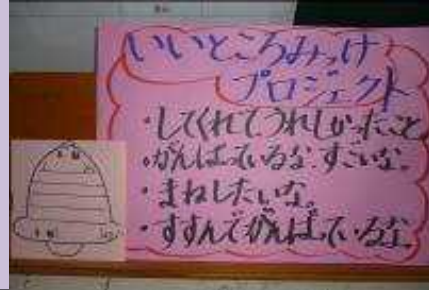 いいところみっけ
プロジェクト
・してくれてうれしかったこと
・がんばっているな.すごいな。
・まねしたいな。
・すすんでがんばっているな。